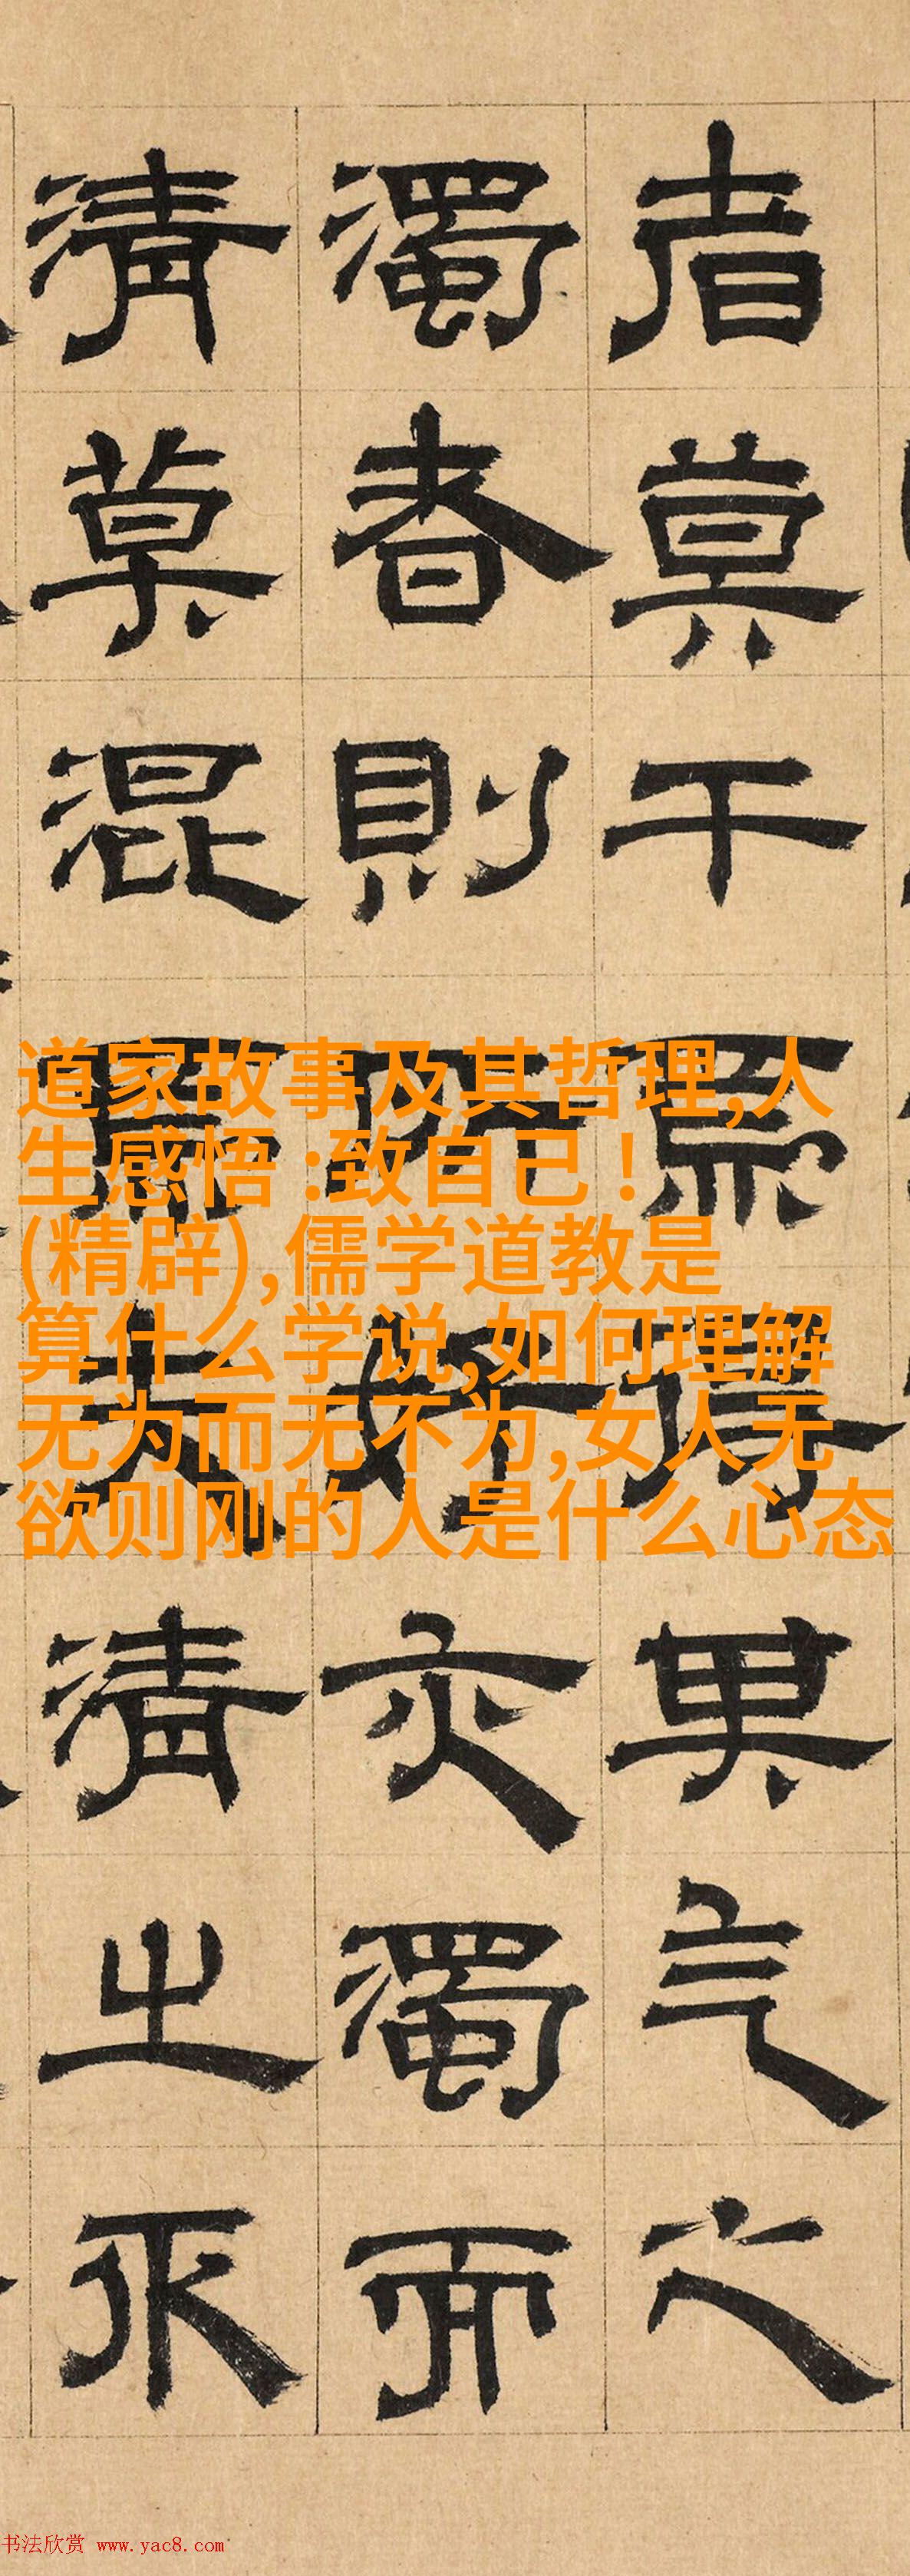 者莫干焉得其气之
濁者則所好亦濁而
清莫混焉夫清之
道家故事及其哲理,人
生感悟 :致自己！
(精辟),儒学道教是
算什么学说,如何理解
无为而无不为,女人无
欲则刚的人是什么心态
书法欣赏 www.yac8.com